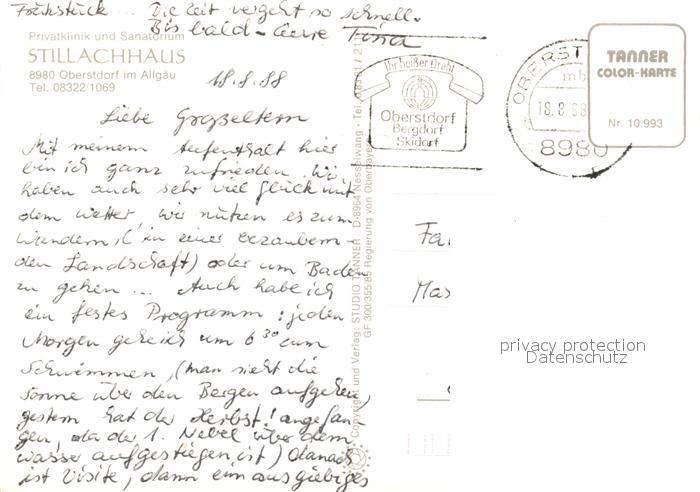 Frühstück ... Die Zeit vergeht so schnell.
Bis bald - Eure Tina
Privatklinik und Sanatorium
STILLACHHAUS
8980 Oberstdorf im Allgäu
Tel. 08322/1069
18.8.88
Liebe Grosseltern
Mit meinem Aufenthalt hier
bin ich ganz zufrieden. Wir
haben auch sehr viel Glück mit
dem Wetter, wir nützen es zum
Wandern (in einer bezaubern-
den Landschaft) oder um Baden
zu gehen ... Auch habe ich
ein festes Programm: jeden
Morgen gehe ich um 6 30 zum
Schwimmen, (man sieht die
Sonne über den Bergen aufgehen,
gestern hat der Herbst! angefan-
gen, da der 1. Nebel über dem
Wasser aufgestiegen ist) danach
ist Visite, dann ein ausgiebiges
Copyright und Verlag: STUDIO TANNER D-8964 Nesselwang - Tel.
GF 300/355/85 Regierung von Oberbayern
Ihr heißer Draht
Oberstdorf
Bergdorf
Skidorf
OBERST
mb
18.8.88
8980
TANNER
COLOR-KARTE
Nr. 10.993
Fa
privacy protection
Datenschutz